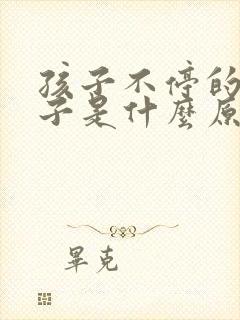 孩子不停的
子是什麼原
畢克